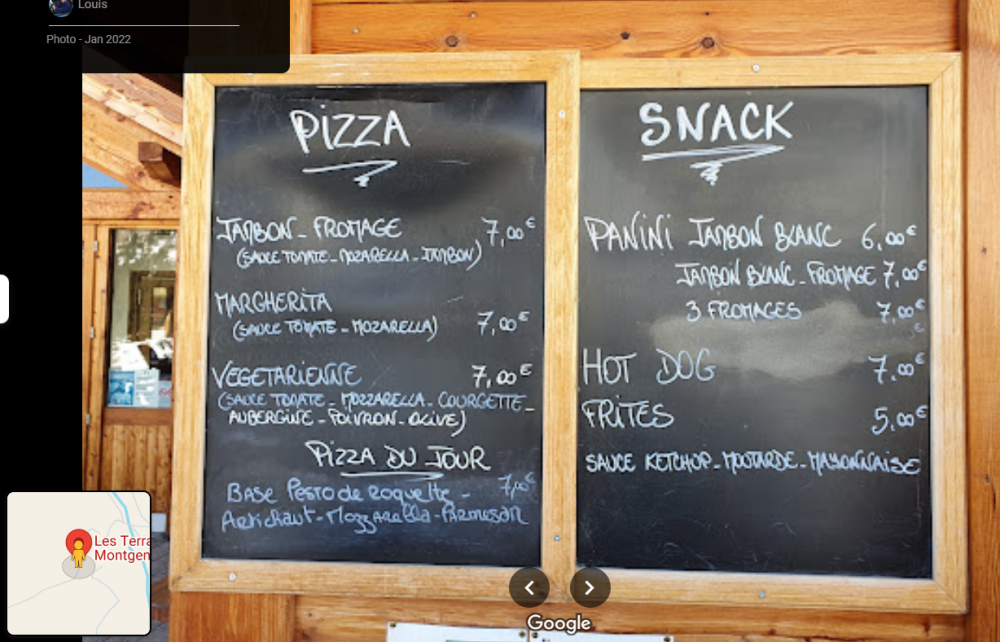 Louis
Photo - Jan 2022
PIZZA
JAMBON - FROMAGE 7,00€
(SAUCE TOMATE - MOZARELLA - JAMBON)
MARGHERITA
(SAUCE TOMATE - MOZARELLA) 7,00€
VEGETARIENNE 7,00€
(SAUCE TOMATE - MOZZARELLA - COURGETTE -
AUBERGINE - POIVRON - OLIVE)
PIZZA DU JOUR
BASE PESTO de ROQUETTE - 7,00€
ARTICHAUT - MOZZARELLA - PARMESAN
SNACK
PANINI JAMBON BLANC 6,00€
JAMBON BLANC - FROMAGE 7,00€
3 FROMAGES 7,00€
€
HOT DOG 7,00€
FRITES 5,00€
SAUCE KETCHUP - MOUTARDE - MAYONNAISE
Les Terra
Montgen
Google